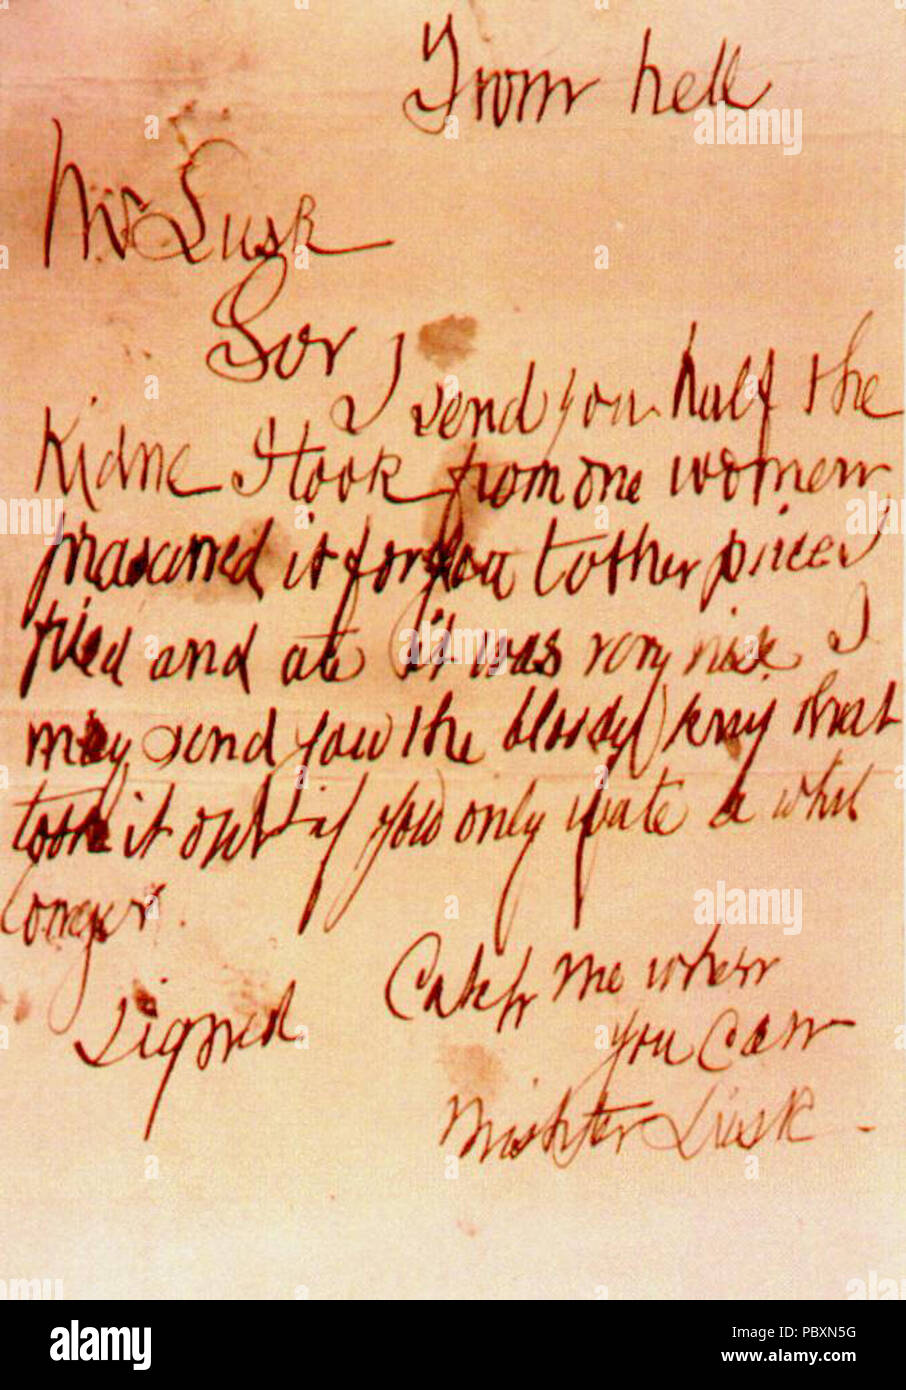 From hell
Mr Lusk
Sor
I send you half the
Kidne I took from one women
prasarved it for you tother piece I
fried and ate it was very nise I
may send you the bloody knif that
took it out if you only wate a whil
longer.
signed
Catch me when
you can
Mishter Lusk
alamy
Image ID: PBXN5G
www.alamy.com